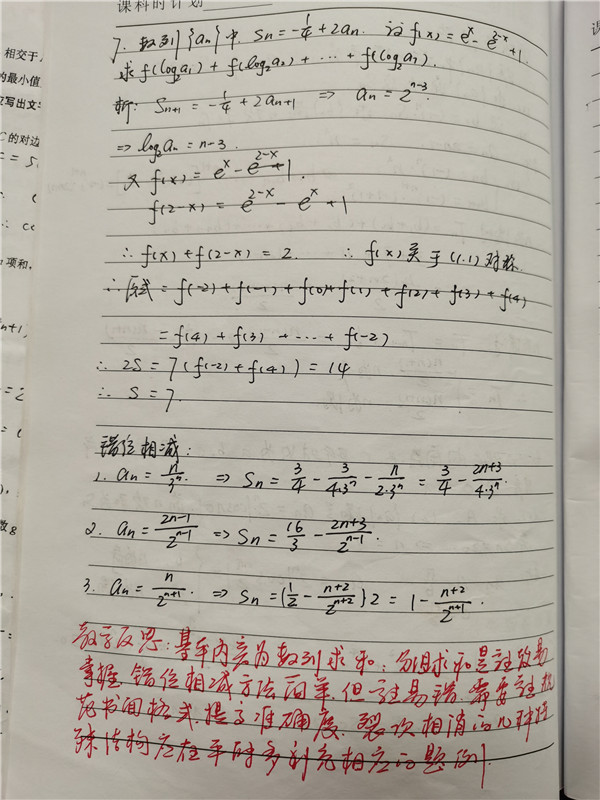 课科时计划
7. 数列{an}中, Sn=-1/4+2an. 设f(x)=e^x-e^(2-x)+1
求f(log₂a₁)+f(log₂a₂)+…+f(log₂a₇).
析: Sn+1=-1/4+2an+1 ⇒ an=2^(n-3).
⇒ log₂an=n-3.
又 f(x)=e^x-e^(2-x)+1.
f(2-x)=e^(2-x)-e^x+1
∴ f(x)+f(2-x)=2. ∴ f(x)关于(1.1)对称.
∴原式=f(-2)+f(-1)+f(0)+f(1)+f(2)+f(3)+f(4)
=f(4)+f(3)+…+f(-2)
∴ 2S=7(f(-2)+f(4))=14
∴ S=7.
错位相减:
1. an=n/3^n. ⇒ Sn=3/4-3/(4·3^n)-n/(2·3^n)=3/4-(2n+3)/(4·3^n).
2. an=(2n-1)/2^(n-1) ⇒ Sn=16/3-(2n+3)/2^(n-1).
3. an=n/2^(n+1). ⇒ Sn=(1/2-(n+2)/2^(n+2))2=1-(n+2)/2^(n+1).
教学反思: 本节内容为数列求和: 分组求和是注
掌握. 错位相减方法简单, 但 易错. 需要注
范书面格式, 提高准确度. 裂项相消的几种特
殊结构应在平时多补充相应的题例.
相交于
的最小值
写出文字
C的对边
项和,